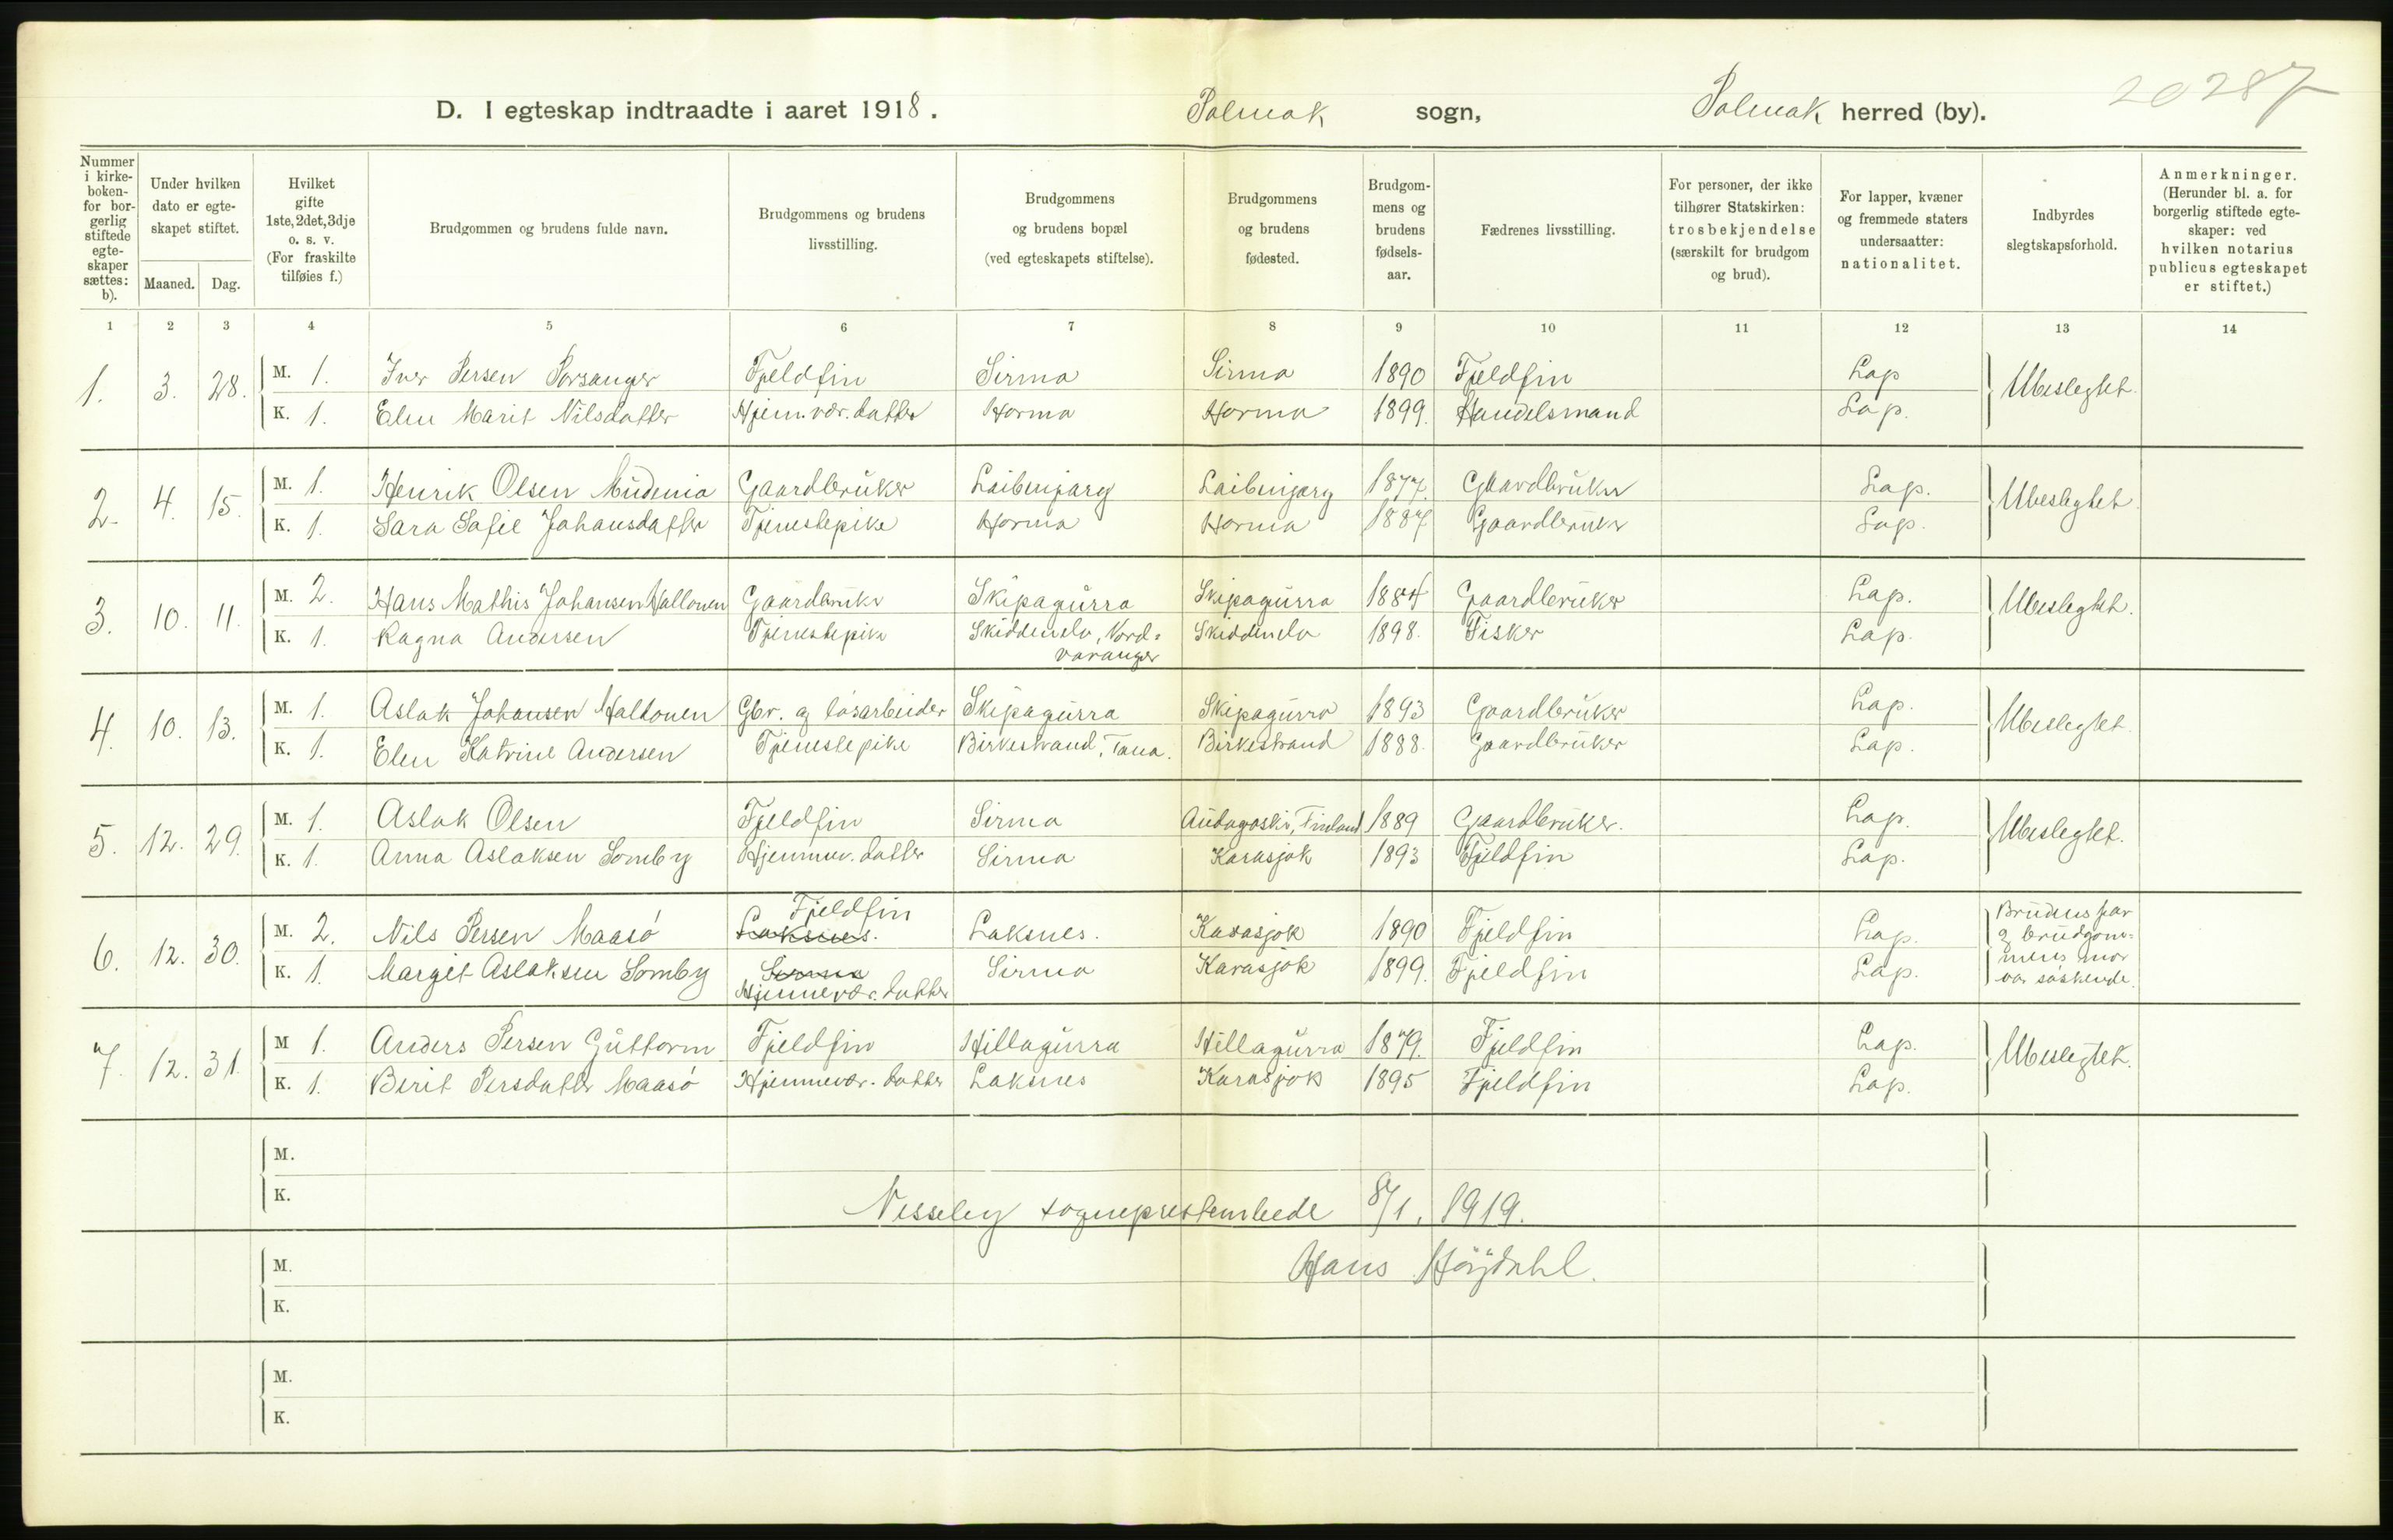 D. I egteskap indtraadte i aaret 1918. Polmak sogn, Polmak herred (by). 20 287
Nummer i kirkeboken- for borgerlig stiftede egteskaper sættes: b).
Under hvilken dato er egteskapet stiftet.
Maaned. Dag.
Hvilket gifte 1ste, 2det, 3dje o. s. v. (For fraskilte tilføies f.)
Brudgommen og brudens fulde navn.
Brudgommens og brudens livsstilling.
Brudgommens og brudens bopæl (ved egteskapets stiftelse).
Brudgommens og brudens fødested.
Brudgommens og brudens fødsels-aar.
Fædrenes livsstilling.
For personer, der ikke tilhører Statskirken: trosbekjendelse (særskilt for brudgom og brud).
For lapper, kvæner og fremmede staters undersaatter: nationalitet.
Indbyrdes slegtskapsforhold.
Anmerkninger. (Herunder bl. a. for borgerlig stiftede egteskaper: ved hvilken notarius publicus egteskapet er stiftet.)
1 2 3 4 5 6 7 8 9 10 11 12 13 14
1. 3. 28. M. 1. Iver Persen Porsanger Fjeldfin Sirma Sirma 1890 Fjeldfin Lap Ubeslegtet
K. 1. Elen Marit Nilsdatter Hjem.vær. datter Horma Horma 1899. Handelsmand Lap.
2. 4. 15. M. 1. Henrik Olsen Mudenia Gaardbruker Laibenjarg Laibenjarg 1877. Gaardbruker Lap. Ubeslegtet
K. 1. Sara Sofie Johansdatter Tjenestepike Horma Horma 1887 Gaardbruker Lap.
3. 10. 11. M. 2. Hans Mathis Johansen Haltonen Gaardbruker Skipagurra Skipagurra 1884 Gaardbruker Lap. Ubeslegtet.
K. 1. Ragna Andersen Tjenestepike Skiddenelv, Nord= Skiddenelv 1898. Fisker Lap.
varanger
4. 10. 13. M. 1. Aslak Johansen Haltonen Gbr. og løsarbeider Skipagurra Skipagurra 1893 Gaardbruker Lap. Ubeslegtet
K. 1. Elen Katrine Andersen Tjenestepike Birkestrand, Tana. Birkestrand 1888. Gaardbruker Lap.
5. 12. 29. M. 1. Aslak Olsen Fjeldfin Sirma Finland 1889 Gaardbruker. Lap. Ubeslegtet.
K. 1. Anna Aslaksen Somby Hjemmev. datter Sirma Karasjok 1893 Fjeldfin Lap.
6. 12. 30. M. 2. Nils Persen Maasø Laksnes. Fjeldfin Laksnes. Karasjok 1890 Fjeldfin Lap. Brudens far
og brudgom=
K. 1. Margit Aslaksen Somby Sirma Hjemmevær. datter Sirma Karasjok 1899. Fjeldfin Lap. mens mor
var søskende.
7. 12. 31. M 1. Anders Persen Guttorm Fjeldfin Hillagurra Hillagurra 1879. Fjeldfin Lap. Ubeslegtet.
K. 1. Berit Persdatter Maasø Hjemmevær. datter Laksnes Karasjok 1895 Fjeldfin Lap.
M.
K.
Nesseby sogneprestembede 8/1. 1919.
M. Hans Höydahl.
K.
M.
K.